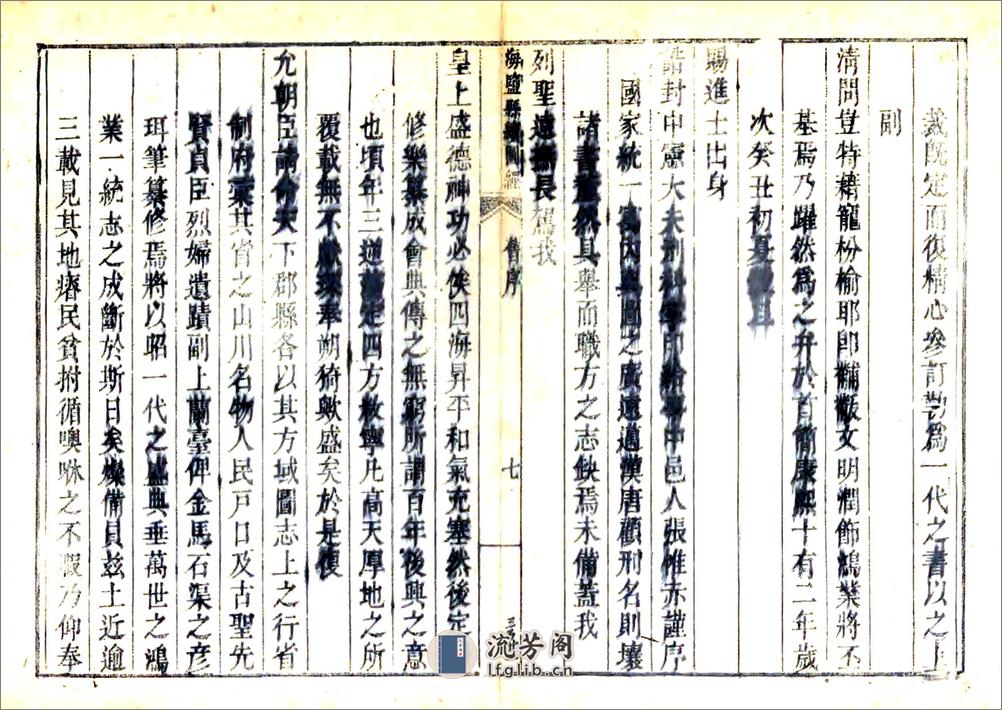 裁既定而復精心參訂勒爲一代之書以之上
副
清問豈特藉寵枌榆耶即黼黻文明潤飾鴻業將不
基焉乃躍然爲之弁於首簡康熙十有二年歲
次癸丑初夏
賜進士出身
誥封中憲大夫刑科掌印給事中邑人張惟赤謹序
國家統一寓內輿圖之廣遠邁漢唐顧刑名則壤
諸書燦然具舉而職方之志缺焉未備蓋我
列聖遠撫長駕我
海鹽縣續圖經 舊序 七
皇上盛德神功必俟四海昇平和氣充塞然後定
修樂纂成會典傳之無窮所謂百年後興之意
也頃年三逆蕩定四方敉寧凡高天厚地之所
覆載無不獻琛奉朔猗歟盛矣於是復
允朝臣請命天下郡縣各以其方域圖志上之行省
制府彙其省之山川名物人民戶口及古聖先
賢貞臣烈婦遺蹟副上蘭臺俾金馬石渠之彦
珥筆纂修焉將以昭一代之盛典垂萬世之鴻
業一統志之成斷於斯日矣燦備員兹土近逾
三載見其地瘠民貧拊循噢咻之不暇乃仰奉
流芳阁
lfglib.cn